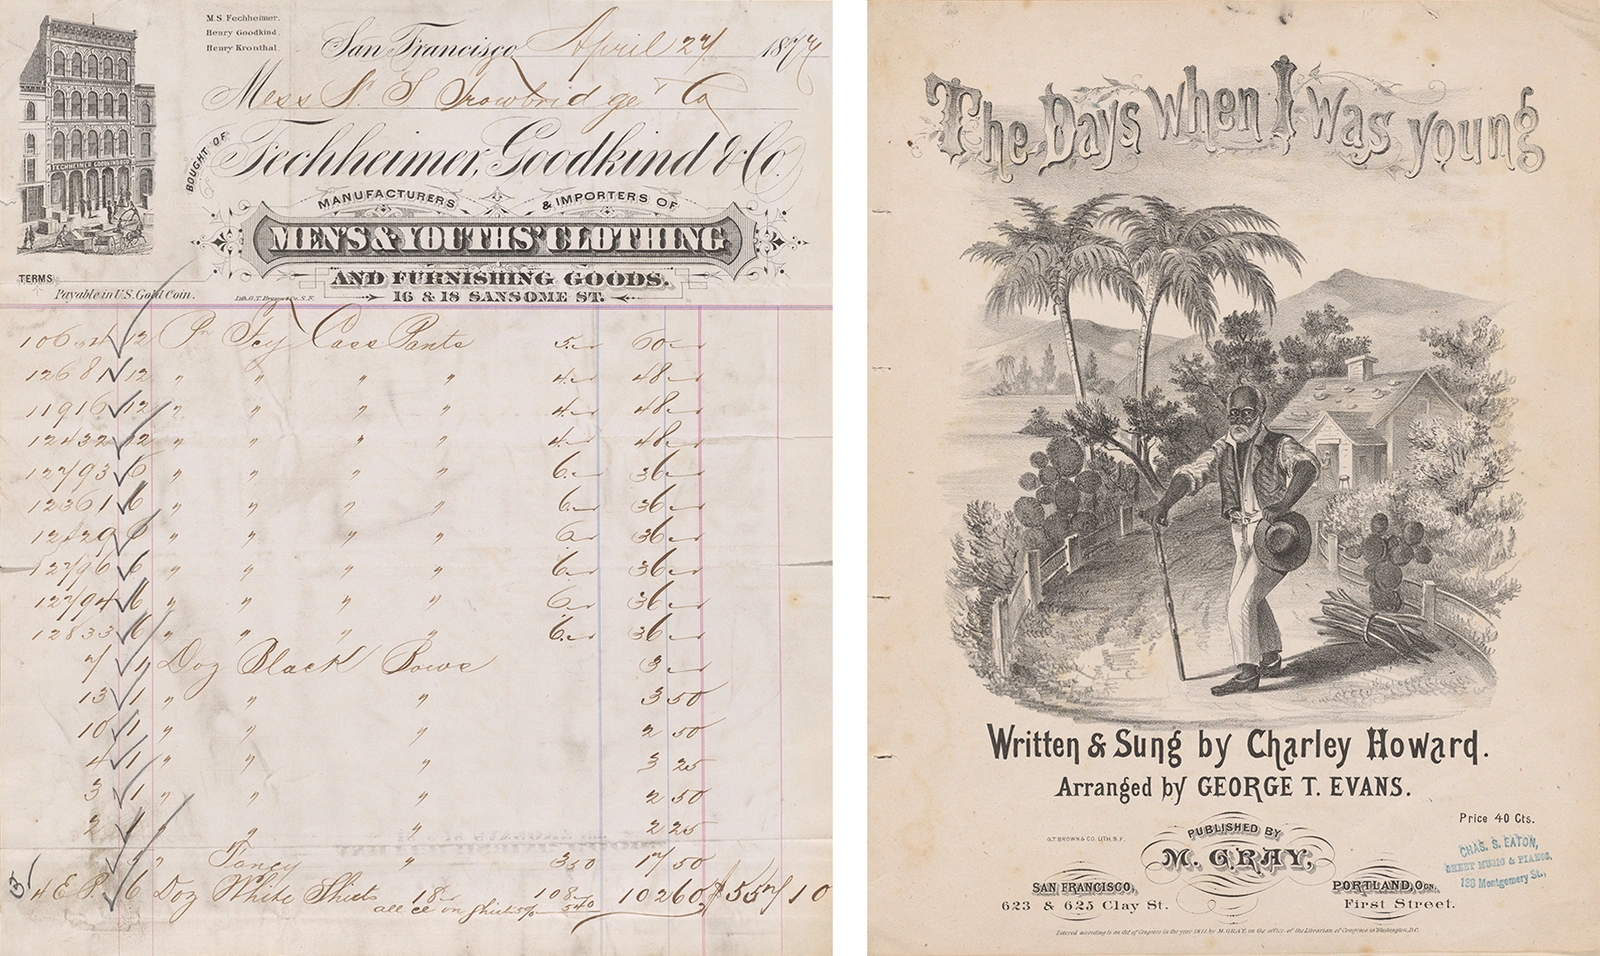 M.S. Fechheimer.
Henry Goodkind.
Henry Kronthal.
San Francisco, April 27 1877
Mess N. S. Trowbridge & Co
BOUGHT OF
Fechheimer, Goodkind & Co.
MANUFACTURERS & IMPORTERS OF
MEN'S & YOUTHS' CLOTHING
AND FURNISHING GOODS.
16 & 18 SANSOME ST.
FECHHEIMER GOODKIND & CO
TERMS
Payable in U.S. Gold Coin.
12 Pr Fcy Cass Pants 5 60
12681 12 " " " " 4 48
11916 12 " " " " 4 48
12432 12 " " " " 4 48
12793 6 " " " " 6 36
12361 6 " " " " 6 36
6 " " " " 6 36
12796 6 " " " " 6 36
12794 6 " " " " 6 36
12833 6 " " " " 6 36
7 1 Doz Black Bows 3
13 1 " " " 3 50
10 1 " " " 2 50
4 1 " " " 3 25
3 1 " " " 2 50
2 1 " " " 2 25
" Fancy " 3 50 17 50
6 Doz White Shirts 18 108 102 60 $557 10
on shirts 5% 5 40
The Days when I Was young
Written & Sung by Charley Howard.
Arranged by GEORGE T. EVANS.
Price 40 Cts.
G.T. BROWN & CO. LITH. S.F.
PUBLISHED BY
M. GRAY,
CHAS. S. EATON,
SHEET MUSIC & PIANOS,
138 Montgomery St.,
SAN FRANCISCO,
623 & 625 Clay St.
PORTLAND, OGN.
First Street.
Entered according to an Act of Congress in the year 1871 by M. GRAY, in the office of the Librarian of Congress in Washington, D.C.